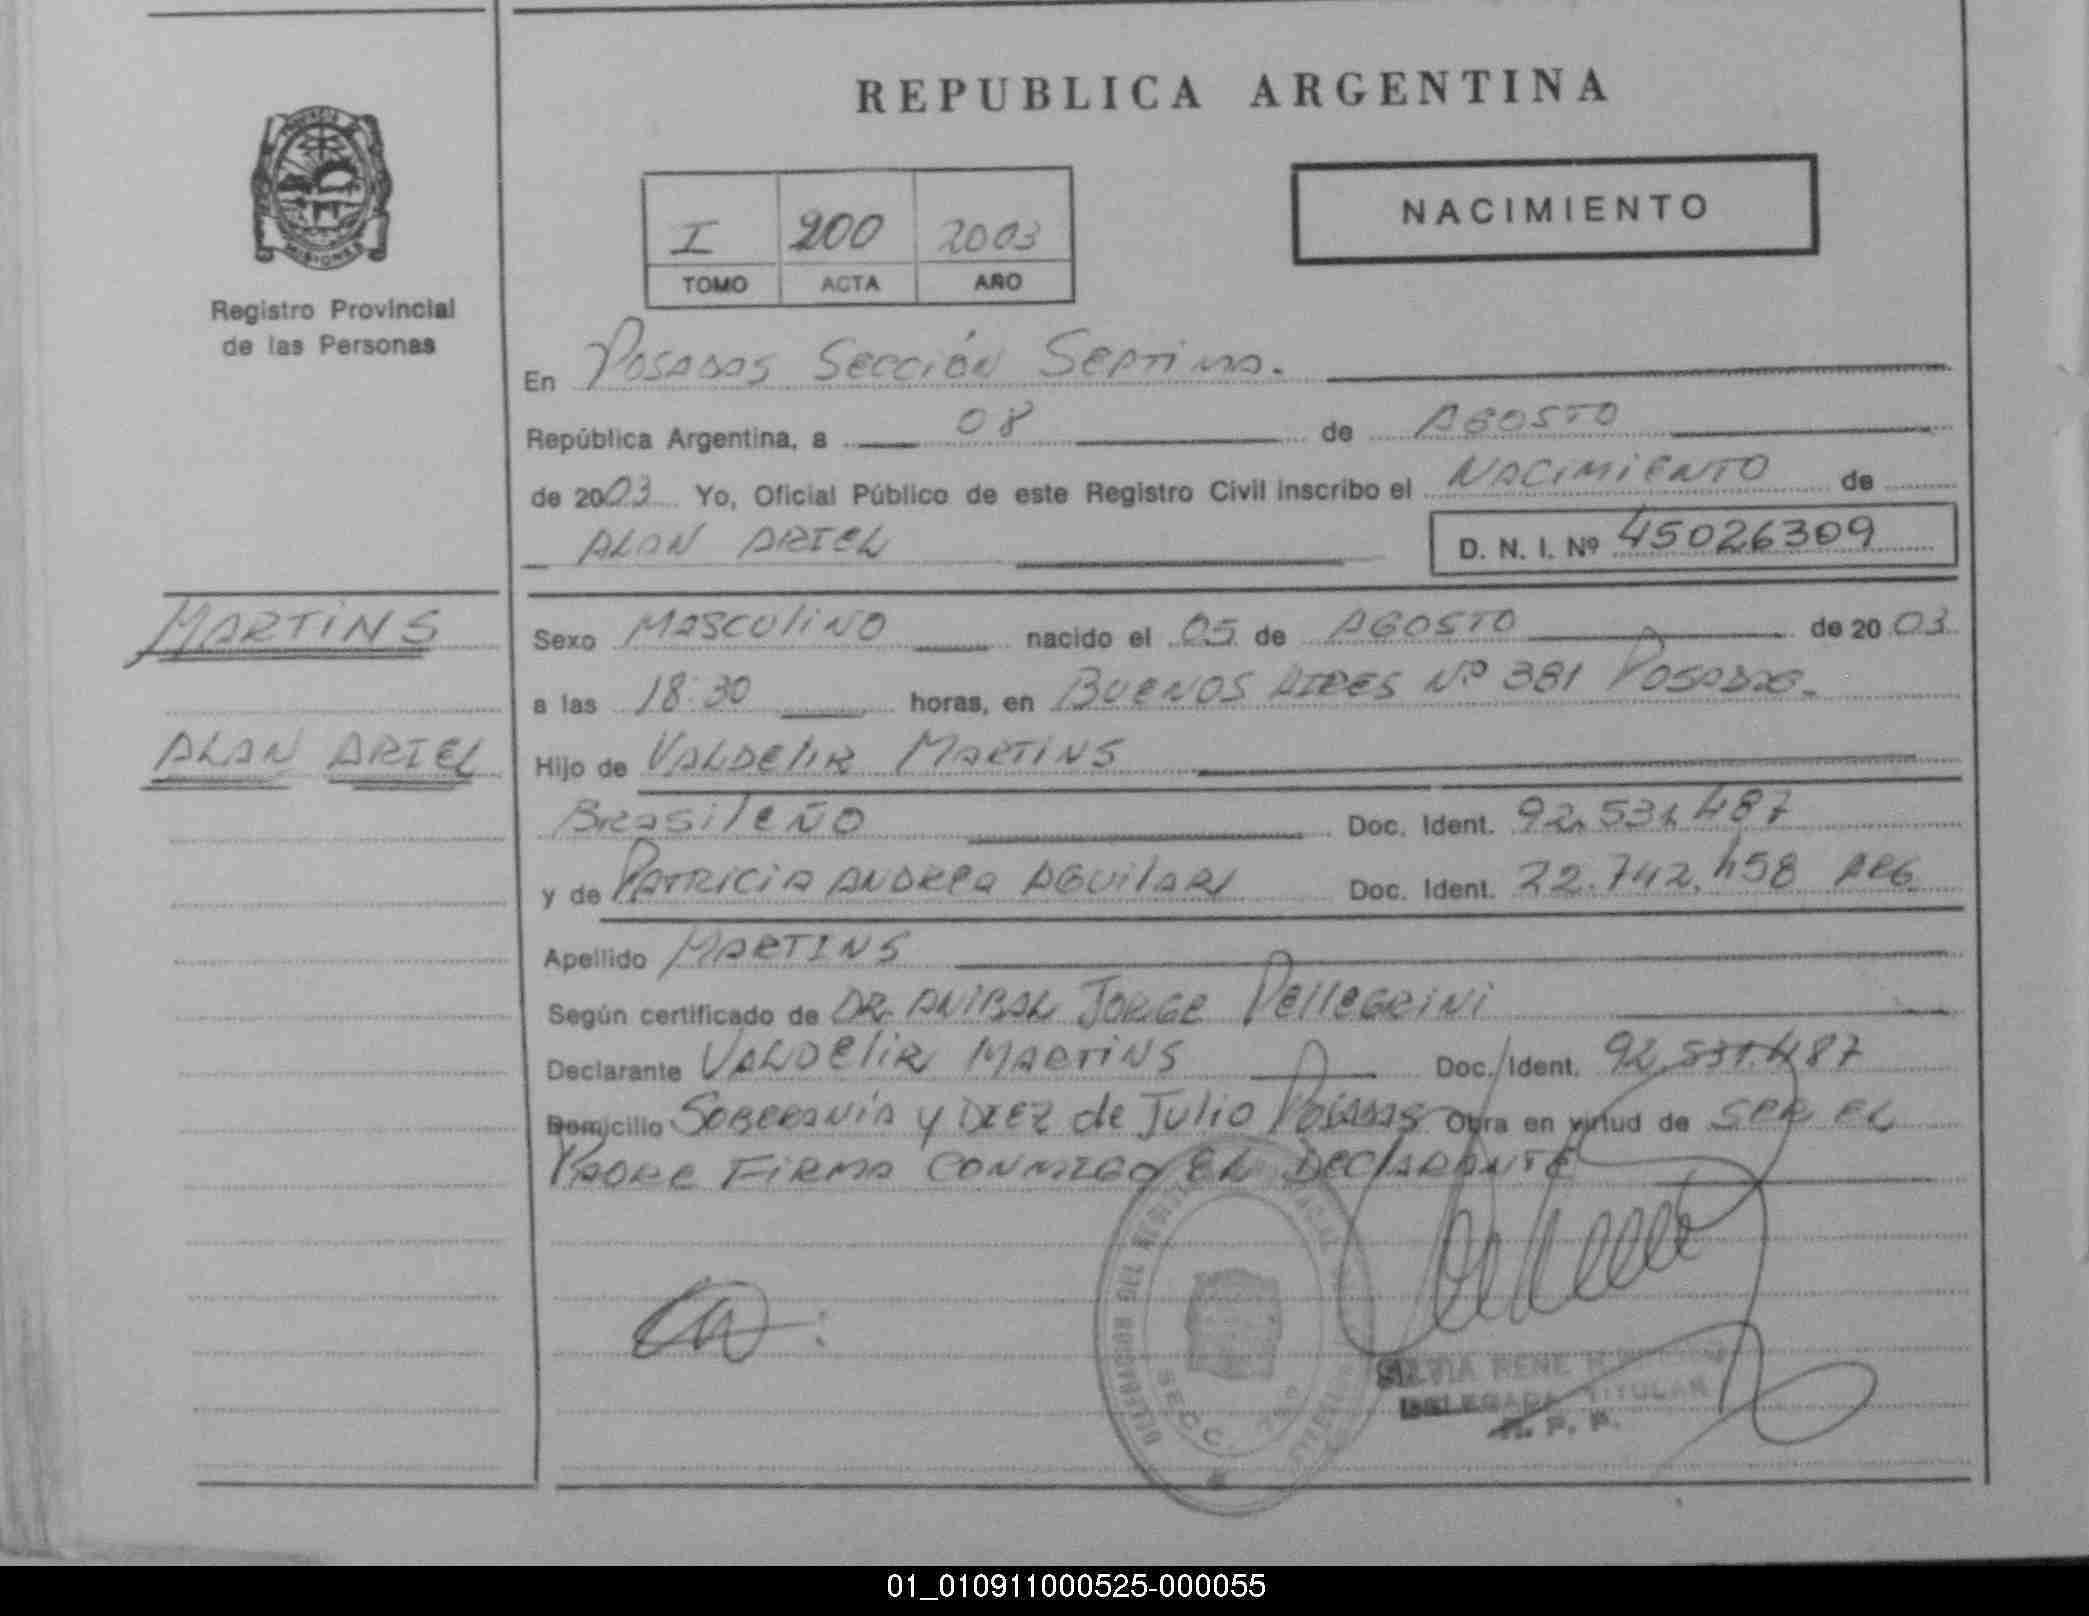 REPUBLICA ARGENTINA
MISIONES
Registro Provincial
de las Personas
I 200 2003
TOMO ACTA AÑO
NACIMIENTO
En Posadas Sección Septima.
República Argentina, a 08 de AGOSTO
de 2003 Yo, Oficial Público de este Registro Civil inscribo el NACIMIENTO de
ALAN ARIEL D. N. I. Nº 45026309
MARTINS
ALAN ARIEL
Sexo MASCULINO nacido el 05 de AGOSTO de 20 03
a las 18:30 horas, en BUENOS AIRES Nº 381 POSADAS.
Hijo de VALDELIR MARTINS
BrasileÑO Doc. Ident. 92.531.487
y de PATRICIA ANDREA AGUILAR Doc. Ident. 22.742.458 ARG
Apellido MARTINS
Según certificado de DR. ANIBAL JORGE PELLEGRINI
Declarante VALDELIR MARTINS Doc. Ident. 92.531.487
Domicilio SOBERANIA y DIEZ de Julio POSADAS Obra en virtud de SER EL
PADRE FIRMA CONMIGO EL DECLARANTE
SECC.
SILVIA RENE
DELEGADA TITULAR
R. P. P.
01_010911000525-000055